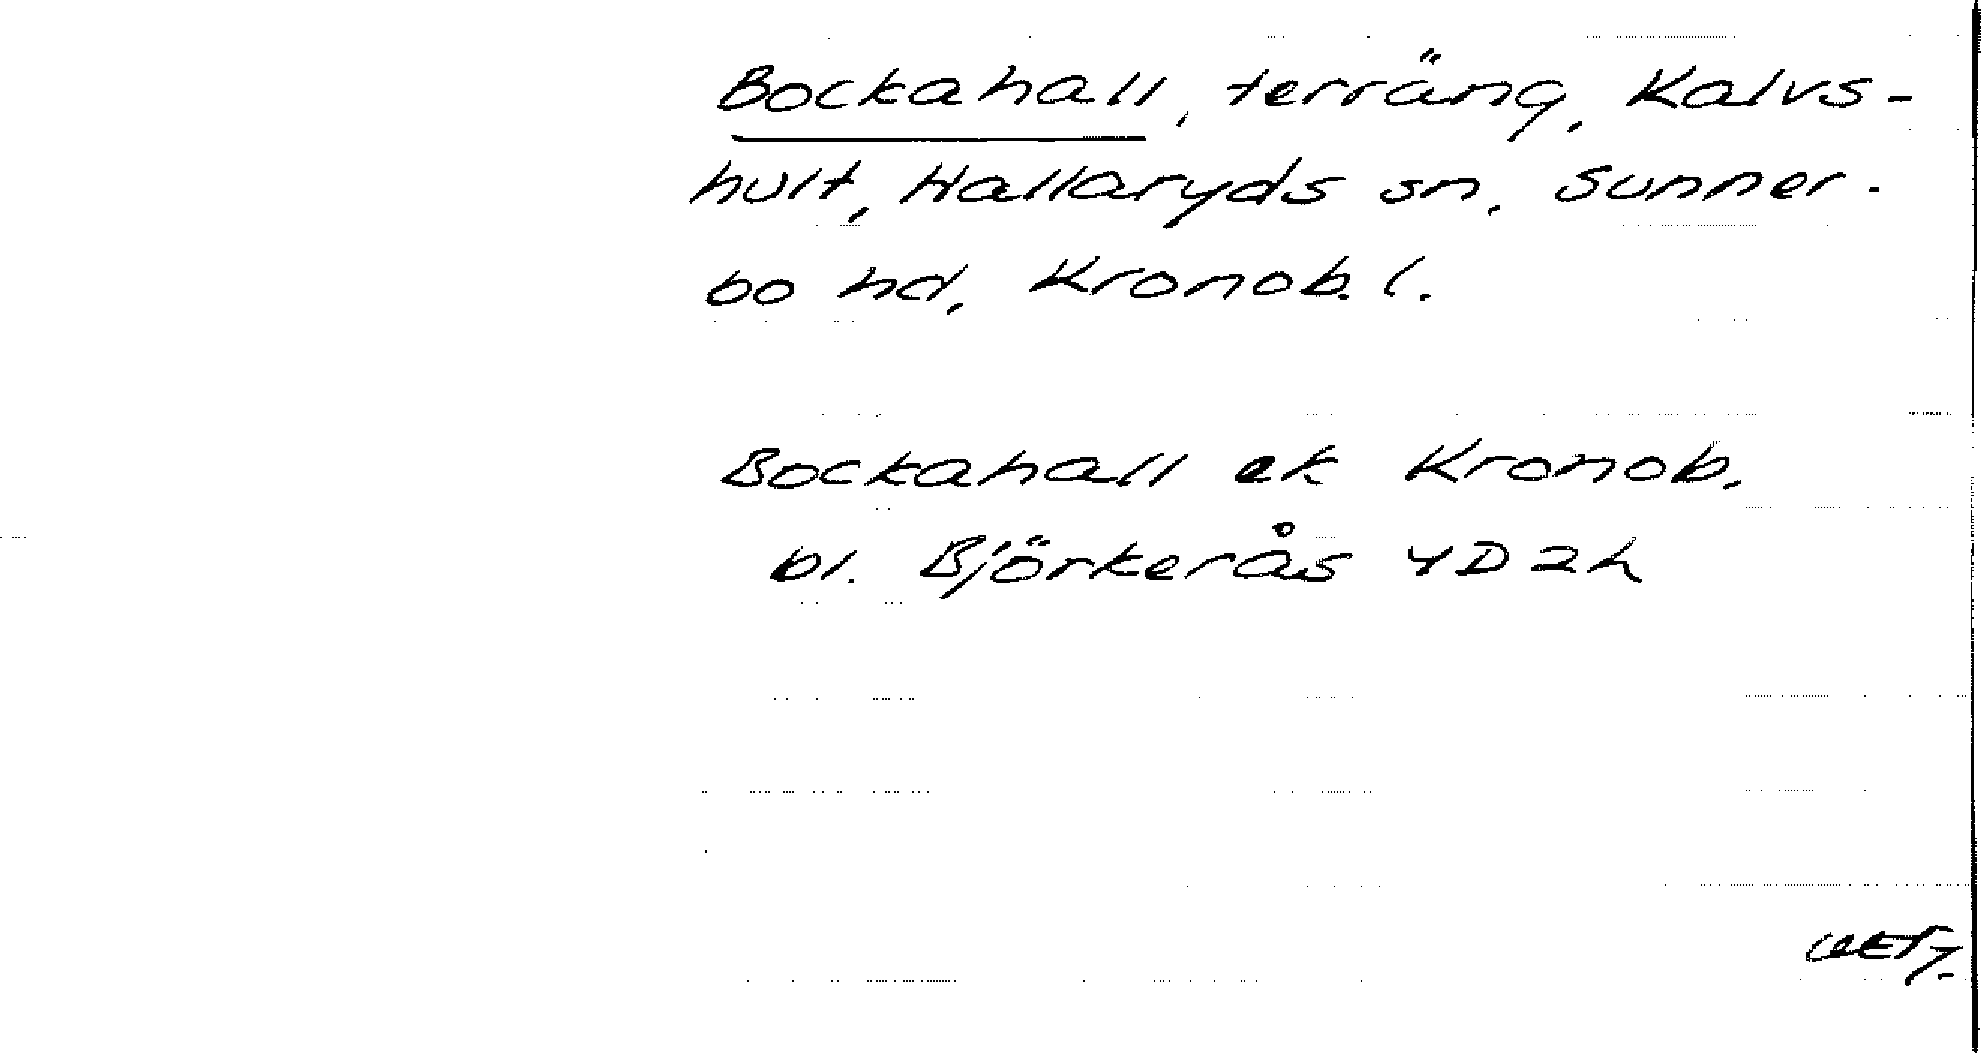 Bockahall, terräng, Kalvs-
hult, Hallaryds sn, Sunner-
bo hd, Kronob. l.
Bockahall ek Kronob.
bl. Björkerås 4D2h